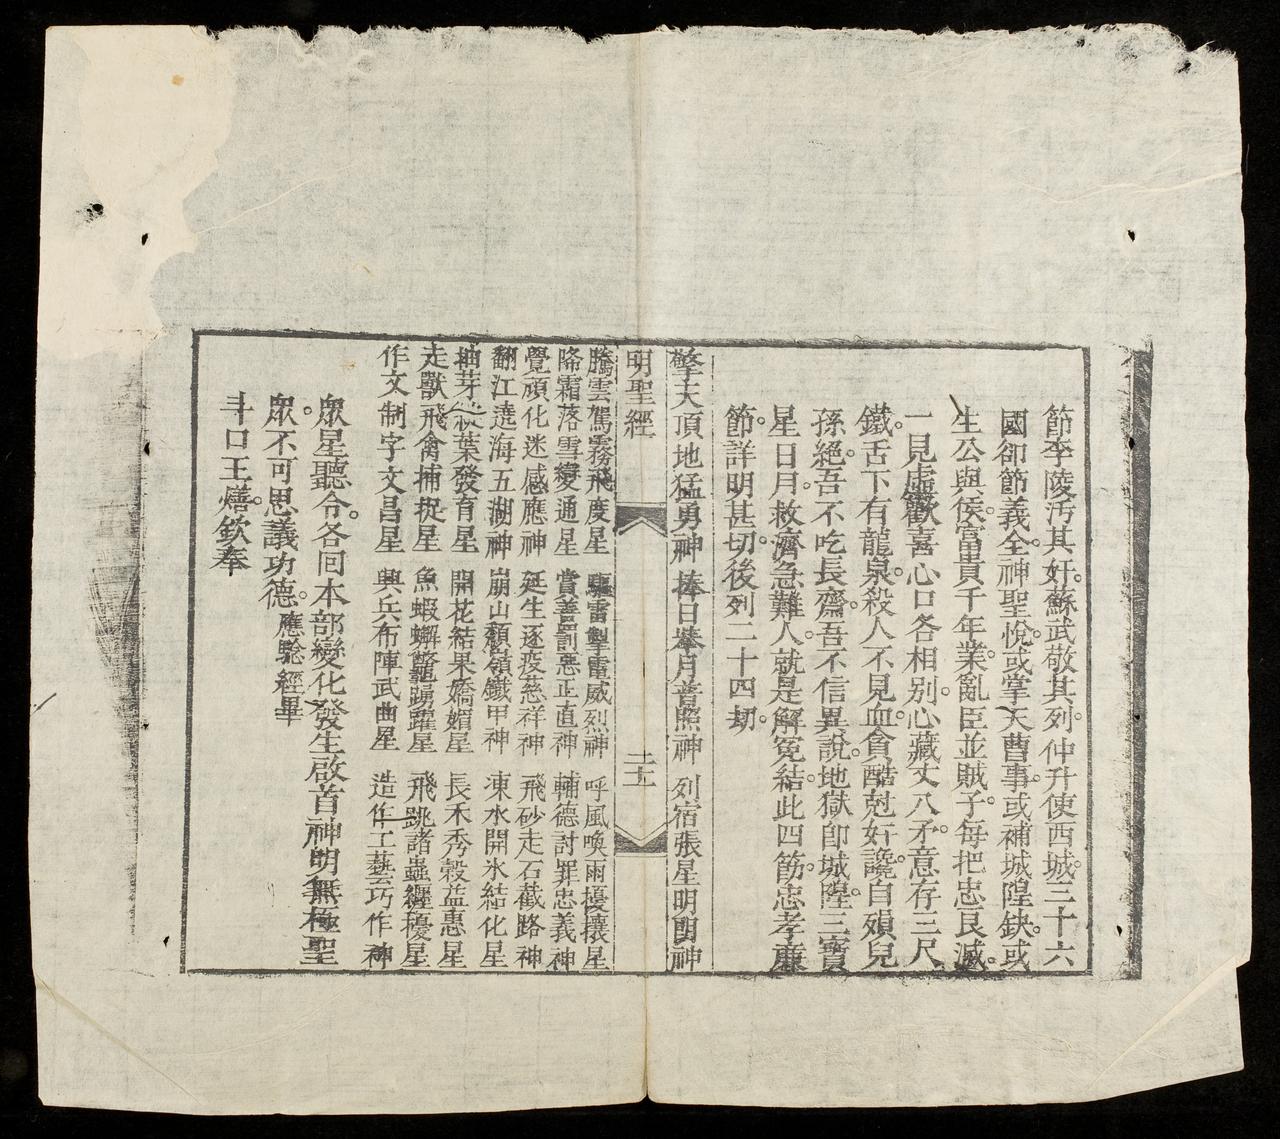 節李陵汚其奸。蘇武敬其列。仲升使西城。三十六
國卻節義全。神聖悅。或掌天曹事。或補城隍缺。或
生公與侯。富貴千年業。亂臣並賊子。每把忠良滅。
一見虛歡喜。心口各相別。心藏丈八矛。意存三尺
鐵。舌下有龍泉。殺人不見血。貪酷尅奸讒。自殞兒
孫絕。吾不吃長齋。吾不信異說。地獄卽城隍。三寶
星日月。救濟急難人。就是解冤結。此四節。忠孝廉
節詳明甚切。後列二十四刼。
擎天頂地猛勇神 捧日拳月普照神 列宿張星明朗神
明聖經 二十五
騰雲駕霧飛度星 驅雷掣電威烈神 呼風喚雨擾攘星
降霜落雪變通星 賞善罰惡正直神 輔德討罪忠義神
覺頑化迷感應神 延生逐疫慈祥神 飛砂走石截路神
翻江遶海五湖神 崩山頹嶺鐵甲神 凍水開氷結化星
抽芽放葉發育星 開花結果嬌媚星 長禾秀穀益惠星
走獸飛禽捕捉星 魚蝦蠏鼈踴躍星 飛跳諸蟲纒擾星
作文制字文昌星 興兵布陣武曲星 造作工藝巧作神
衆星聽令。各囘本部。變化發生。啟首神明。無極聖
衆。不可思議功德。應騐經畢
斗口王燔。欽奉